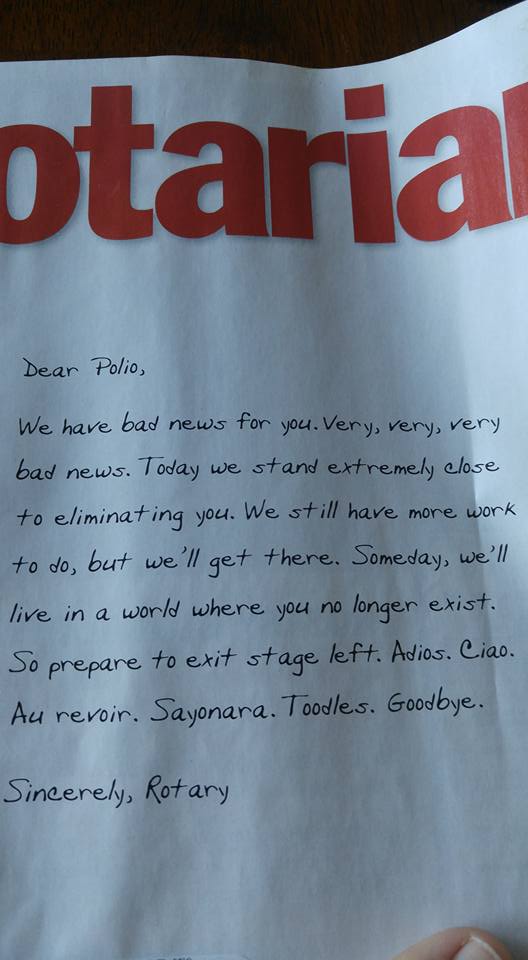 otarian
Dear Polio,
We have bad news for you. Very, very, very
bad news. Today we stand extremely close
to eliminating you. We still have more work
to do, but we'll get there. Someday, we'll
live in a world where you no longer exist.
So prepare to exit stage left. Adios. Ciao.
Au revoir. Sayonara. Toodles. Goodbye.
Sincerely, Rotary